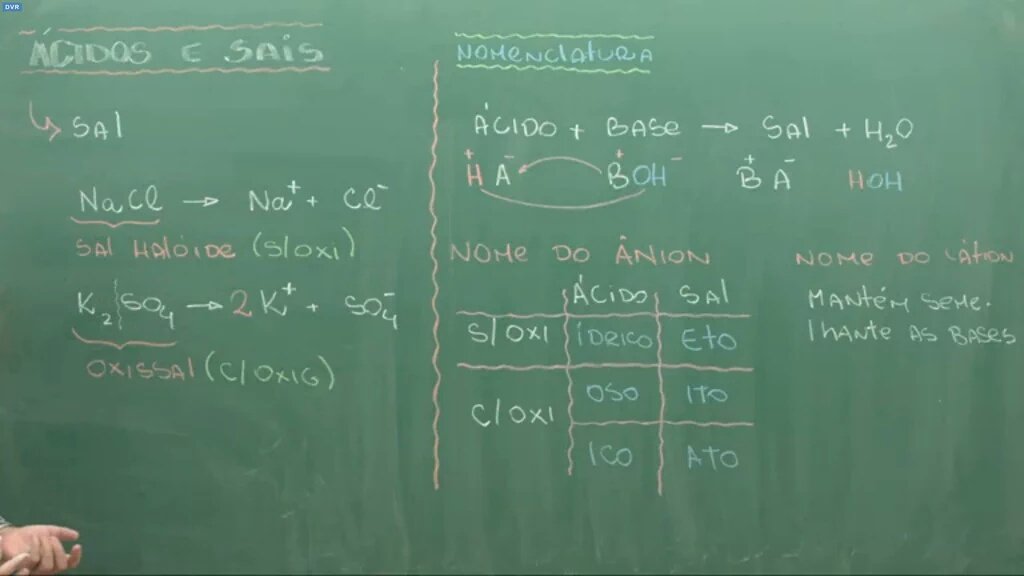 DVR
ÁCIDOS E SAIS
↳ SAl
NaCl → Na⁺ + Cl⁻
SAl HALÓIDE (S/OXI)
K₂|SO₄ → 2K⁺ + SO₄⁻
OXISSAl (C/OXIG)
NOMENCLATURA
ÁCIDO + BASE → SAl + H₂O
H⁺A⁻ B⁺OH⁻ B⁺A⁻ HOH
NOME DO ÂNION
ÁCIDO SAl
S/OXI ÍDRICO ETO
C/OXI OSO ITO
ICO ATO
NOME DO CÁTION
MANTÉM SEME-
lHANTE AS BASES